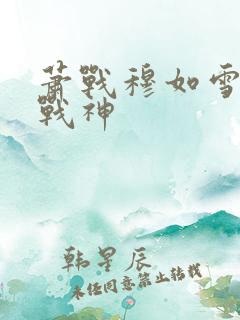 萧戰穆如雪
戰神
韩星辰
未经同意禁止转载